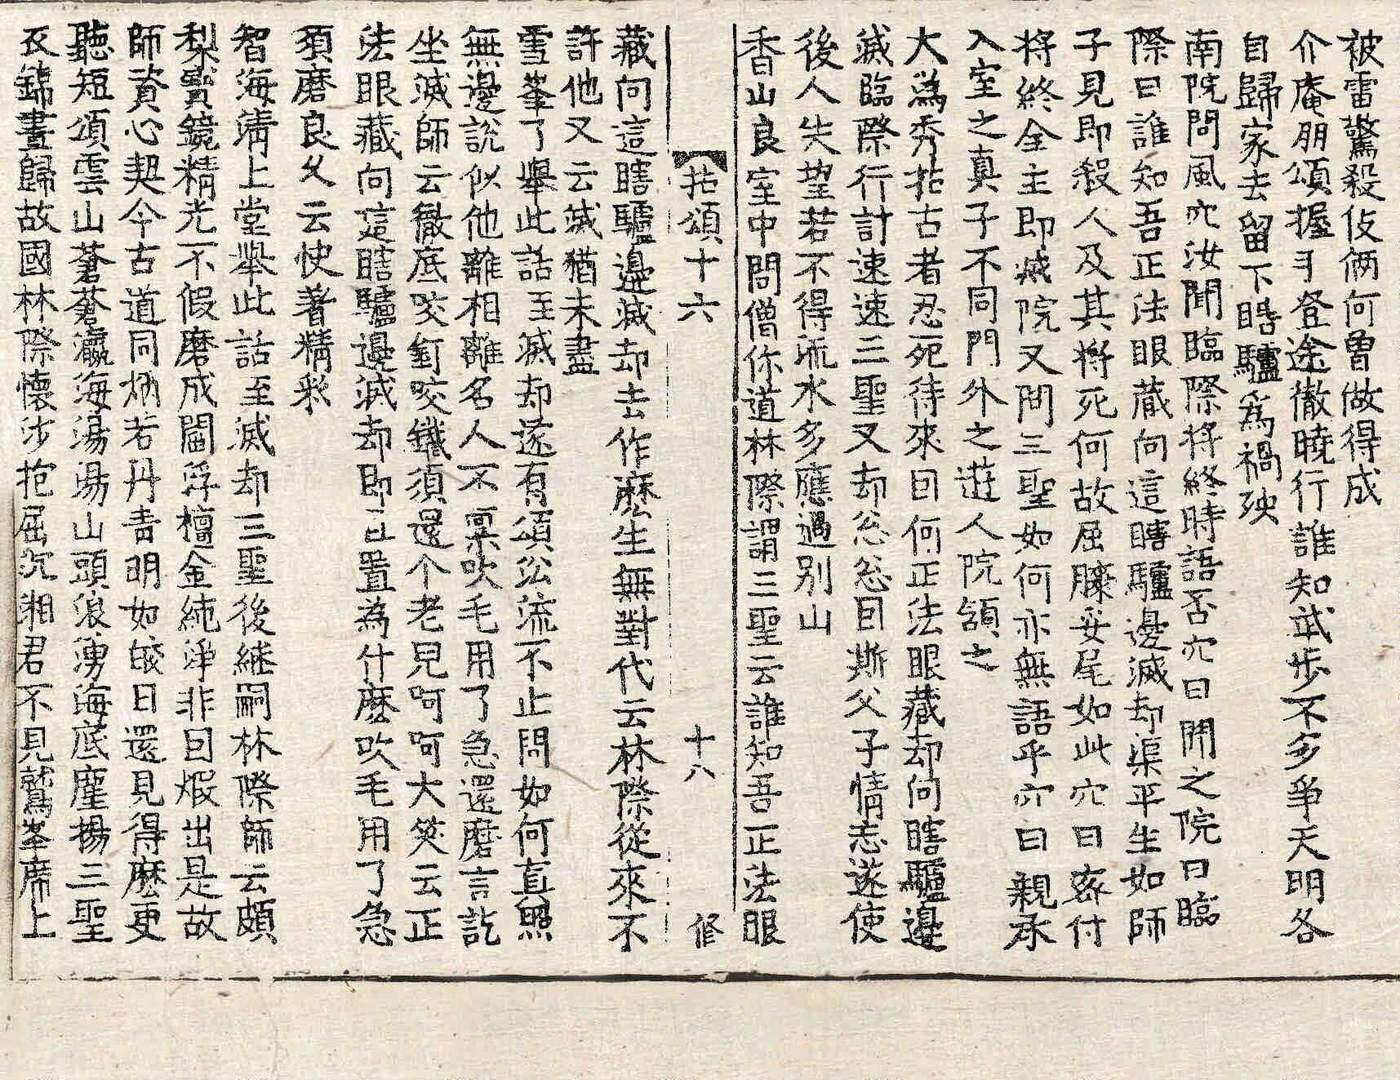 被雷驚殺伎倆何曾做得成
介庵朋頌握手登途徹曉行誰知武步不多爭天明各
自歸家去留下瞎驢爲禍殃
南院問風穴汝聞臨際將終時語否穴曰聞之院曰臨
際曰誰知吾正法眼藏向這瞎驢邊滅却渠平生如師
子見即殺人及其將死何故屈膝妥尾如此穴曰密付
將終全主即滅院又問三聖如何亦無語乎穴曰親承
入室之真子不同門外之遊人院頷之
大潙秀拈古者忍死待來曰何正法眼藏却向瞎驢邊
滅臨際行計速速三聖又却忩忩因斯父子情志遂使
後人失望若不得流水多應過別山
香山良室中問僧你道林際謂三聖云誰知吾正法眼
拈頌十六 十八 修
藏向這瞎驢邊滅却去作麽生無對代云林際從來不
許他又云滅猶未盡
雪峯了舉此話至滅却遂有頌公流不止問如何直照
無邊說似他離相離名人不稟吹毛用了急還磨言訖
坐滅師云徹底咬釘咬鐵須還个老兒呵呵大笑云正
法眼藏向這瞎驢邊滅却即且置為什麽吹毛用了急
須磨良久云快著精彩
智海淸上堂舉此話至滅却三聖後継嗣林際師云頗
梨寶鏡精光不假磨成閻浮檀金純淨非因煆出是故
師資心契今古道同炳若丹靑明如皎日還見得麽更
聽短頌雲山蒼蒼瀛海湯湯山頭浪湧海底塵揚三聖
衣錦晝歸故國林際懷沙抱屈沉湘君不見鷲峯席上